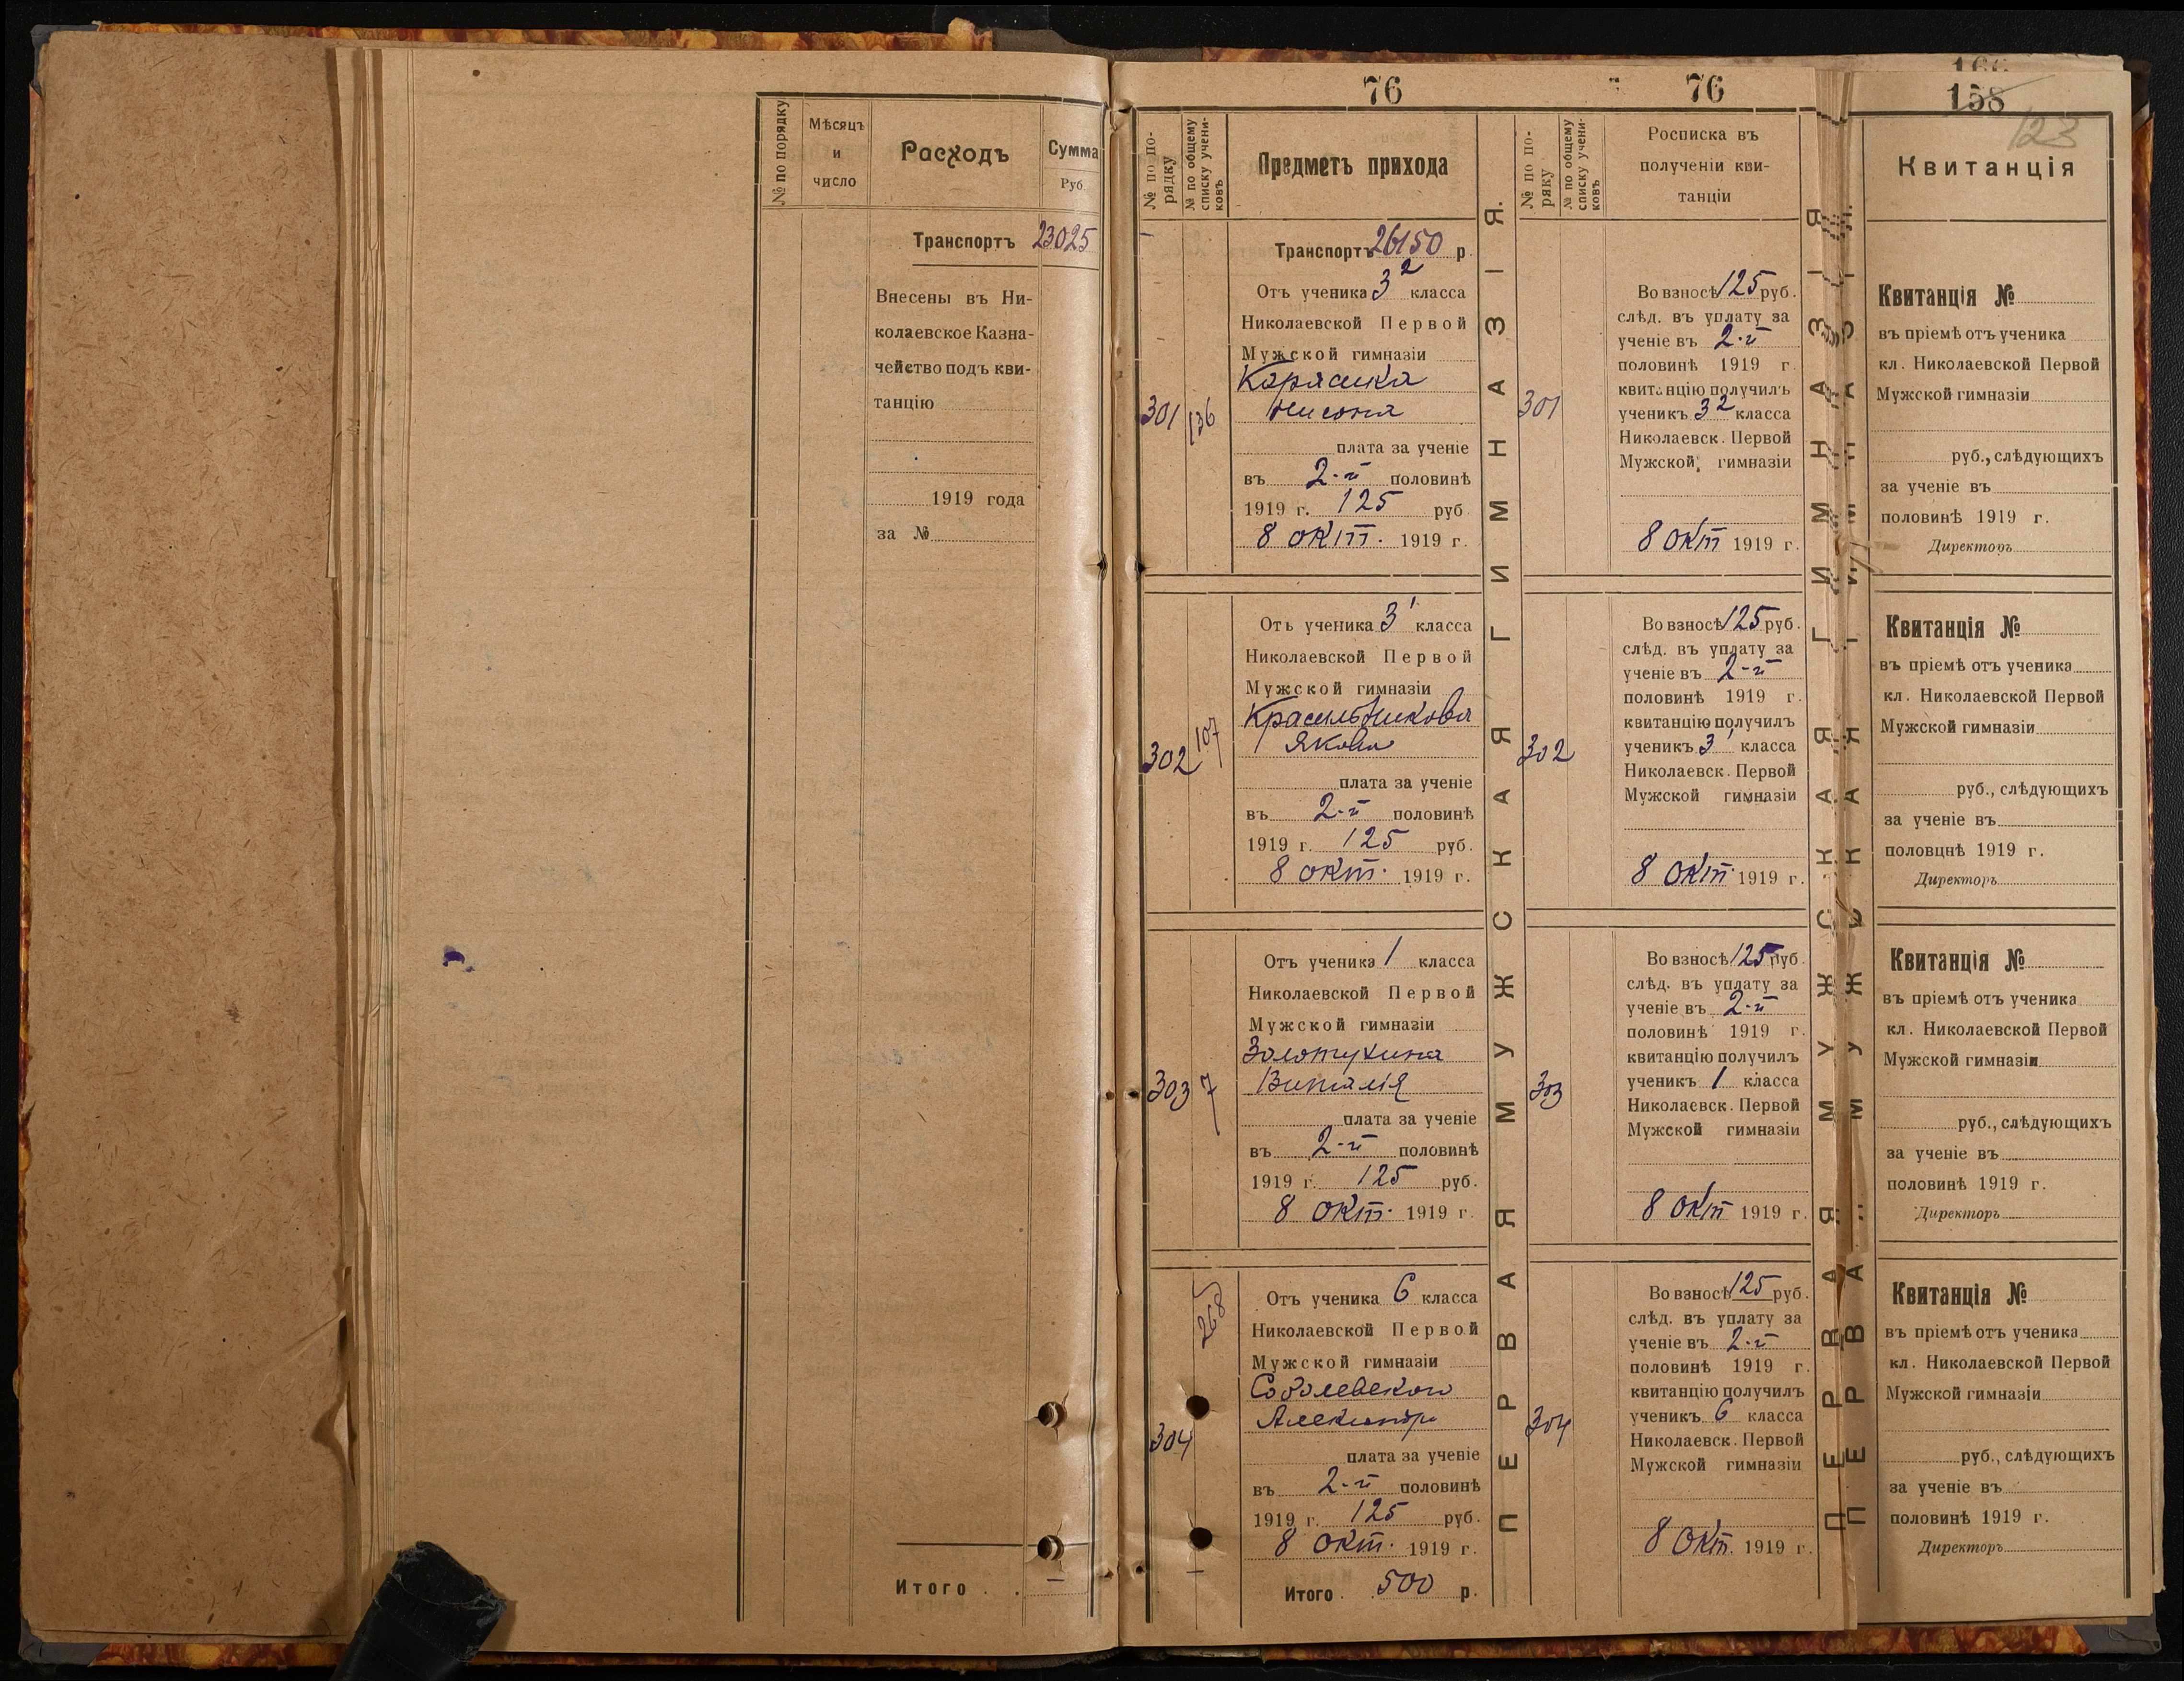 № по порядку
Мѣсяцъ
и
число
Расходъ
Сумма
Руб
Транспортъ 23025
Внесены въ Ни-
колаевское Казна-
чейство подъ кви-
танцію
1919 года
за №
Итого . .
76
№ по по-
рядку
№ по общему
списку учени-
ковъ
Предметъ прихода
Транспортъ 26150 р.
Отъ ученика 3² класса
Николаевской Первой
Мужской гимназіи
Карасика
Нисона
301
136
плата за ученіе
въ 2-й половинѣ
1919 г. 125 руб
8 окт. 1919 г.
Отъ ученика 3' класса
Николаевской Первой
Мужской гимназіи
Красильникова
Якова
302
107
плата за ученіе
въ 2-й половинѣ
1919 г. 125 руб.
8 окт. 1919 г.
Отъ ученика 1 класса
Николаевской Первой
Мужской гимназіи
Золотухина
Виталія
303
7
плата за ученіе
въ 2-й половинѣ
1919 г. 125 руб.
8 окт. 1919 г.
268
Отъ ученика 6 класса
Николаевской Первой
Мужской гимназіи
Соболевскаго
Александра
304
плата за ученіе
въ 2-й половинѣ
1919 г. 125 руб.
8 окт. 1919 г.
Итого . 500 р.
ПЕРВАЯ МУЖСКАЯ ГИМНАЗІЯ.
76
№ по по-
ряку
№ по общему
списку учени-
ковъ
Росписка въ
полученіи кви-
танціи
Во взносѣ 125 руб.
слѣд. въ уплату за
ученіе въ 2-й
половинѣ 1919 г.
квитанцію получилъ
301
ученикъ 3² класса
Николаевск. Первой
Мужской гимназіи
8 окт 1919 г.
Во взносѣ 125 руб.
слѣд. въ уплату за
ученіе въ 2-й
половинѣ 1919 г.
квитанцію получилъ
302
ученикъ 3' класса
Николаевск. Первой
Мужской гимназіи
8 окт. 1919 г.
Во взносѣ 125 руб
слѣд. въ уплату за
ученіе въ 2-й
половинѣ 1919 г.
квитанцію получилъ
303
ученикъ 1 класса
Николаевск. Первой
Мужской гимназіи
8 окт 1919 г.
Во взносѣ 125 руб.
слѣд. въ уплату за
ученіе въ 2-й
половинѣ 1919 г.
квитанцію получилъ
304
ученикъ 6 класса
Николаевск. Первой
Мужской гимназіи
8 окт. 1919 г.
ПЕРВАЯ МУЖСКАЯ ГИМНАЗІЯ
158
123
Квитанція
Квитанція №
въ пріемѣ отъ ученика
кл. Николаевской Первой
Мужской гимназіи
руб., слѣдующихъ
за ученіе въ
половинѣ 1919 г.
Директоръ
Квитанція №
въ пріемѣ отъ ученика
кл. Николаевской Первой
Мужской гимназіи
руб., слѣдующихъ
за ученіе въ
половцнѣ 1919 г.
Директоръ
Квитанція №
въ пріемѣ отъ ученика
кл. Николаевской Первой
Мужской гимназіи
руб., слѣдующихъ
за ученіе въ
половинѣ 1919 г.
Директоръ
Квитанція №
въ пріемѣ отъ ученика
кл. Николаевской Первой
Мужской гимназіи
руб., слѣдующихъ
за ученіе въ
половинѣ 1919 г.
Директоръ